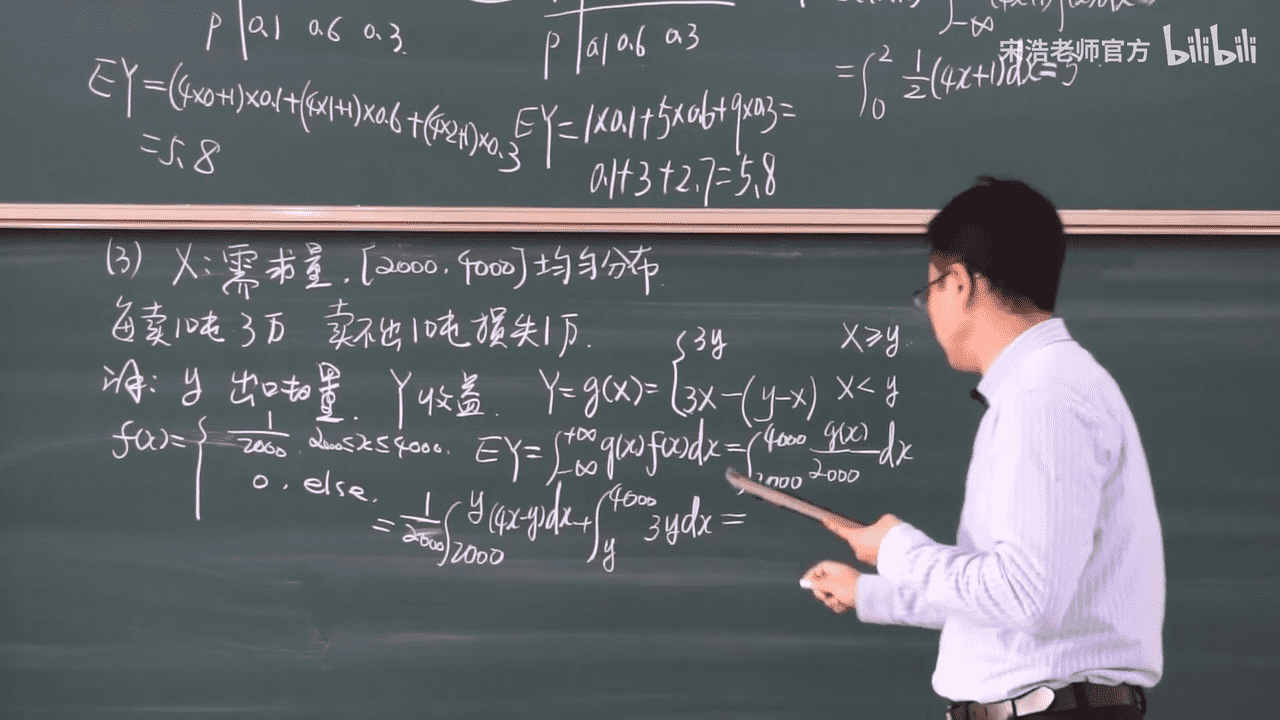 P | 0.1 0.6 0.3
EY=(4×0+1)×0.1+(4×1+1)×0.6+(4×2+1)×0.3
=5.8
P | 0.1 0.6 0.3
EY=1×0.1+5×0.6+9×0.3=
0.1+3+2.7=5.8
∫-∞
=∫₀² 1/2(4x+1)dx=5
宋浩老师官方 bilibili
(3) X:需求量.[2000,4000]上均匀分布.
每卖10吨3万 卖不出10吨损失1万.
设: y 出口量. Y收益. Y=g(X)={3y X≥y.
3X-(y-X) X<y
f(x)={1/2000 . 2000≤x≤4000. EY=∫-∞^+∞ g(x)f(x)dx=∫2000^4000 g(x)/2000 dx
0. else.
=1/2000 ∫2000^y (4x-y)dx+∫y^4000 3ydx=